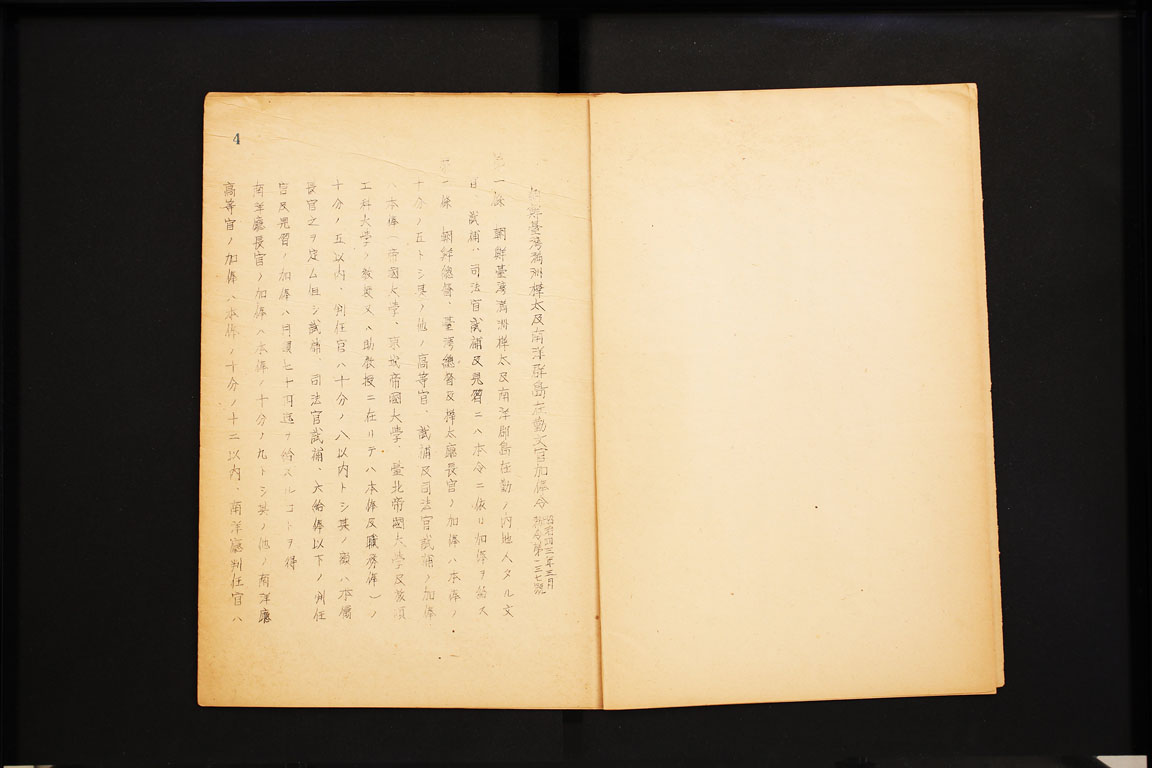 朝鮮臺灣滿洲樺太及南洋群島在勤文官加俸令
昭和 三年三月
勅令第一三七號
第一條 朝鮮臺灣滿洲樺太及南洋群島在勤ノ內地人タル文
官、試補、司法官試補及見習ニハ本令ニ依リ加俸ヲ給ス
第二條 朝鮮總督、臺灣總督及樺太廳長官ノ加俸ハ本俸ノ
十分ノ五トシ其ノ他ノ高等官、試補及司法官試補ノ加俸
ハ本俸(帝國大學、京城帝國大學、臺北帝國大學及旅順
工科大學ノ教授又ハ助教授ニ在リテハ本俸及職務俸)ノ
十分ノ五以內、判任官ハ十分ノ八以內トシ其ノ額ハ本屬
長官之ヲ定ム但シ試補、司法官試補、六給俸以下ノ判任
官及見習ノ加俸ハ月額七十円迄ヲ給スルコトヲ得
南洋廳長官ノ加俸ハ本俸ノ十分ノ九トシ其ノ他ノ南洋廳
高等官ノ加俸ハ本俸ノ十分ノ十二以內、南洋廳判任官ハ
4